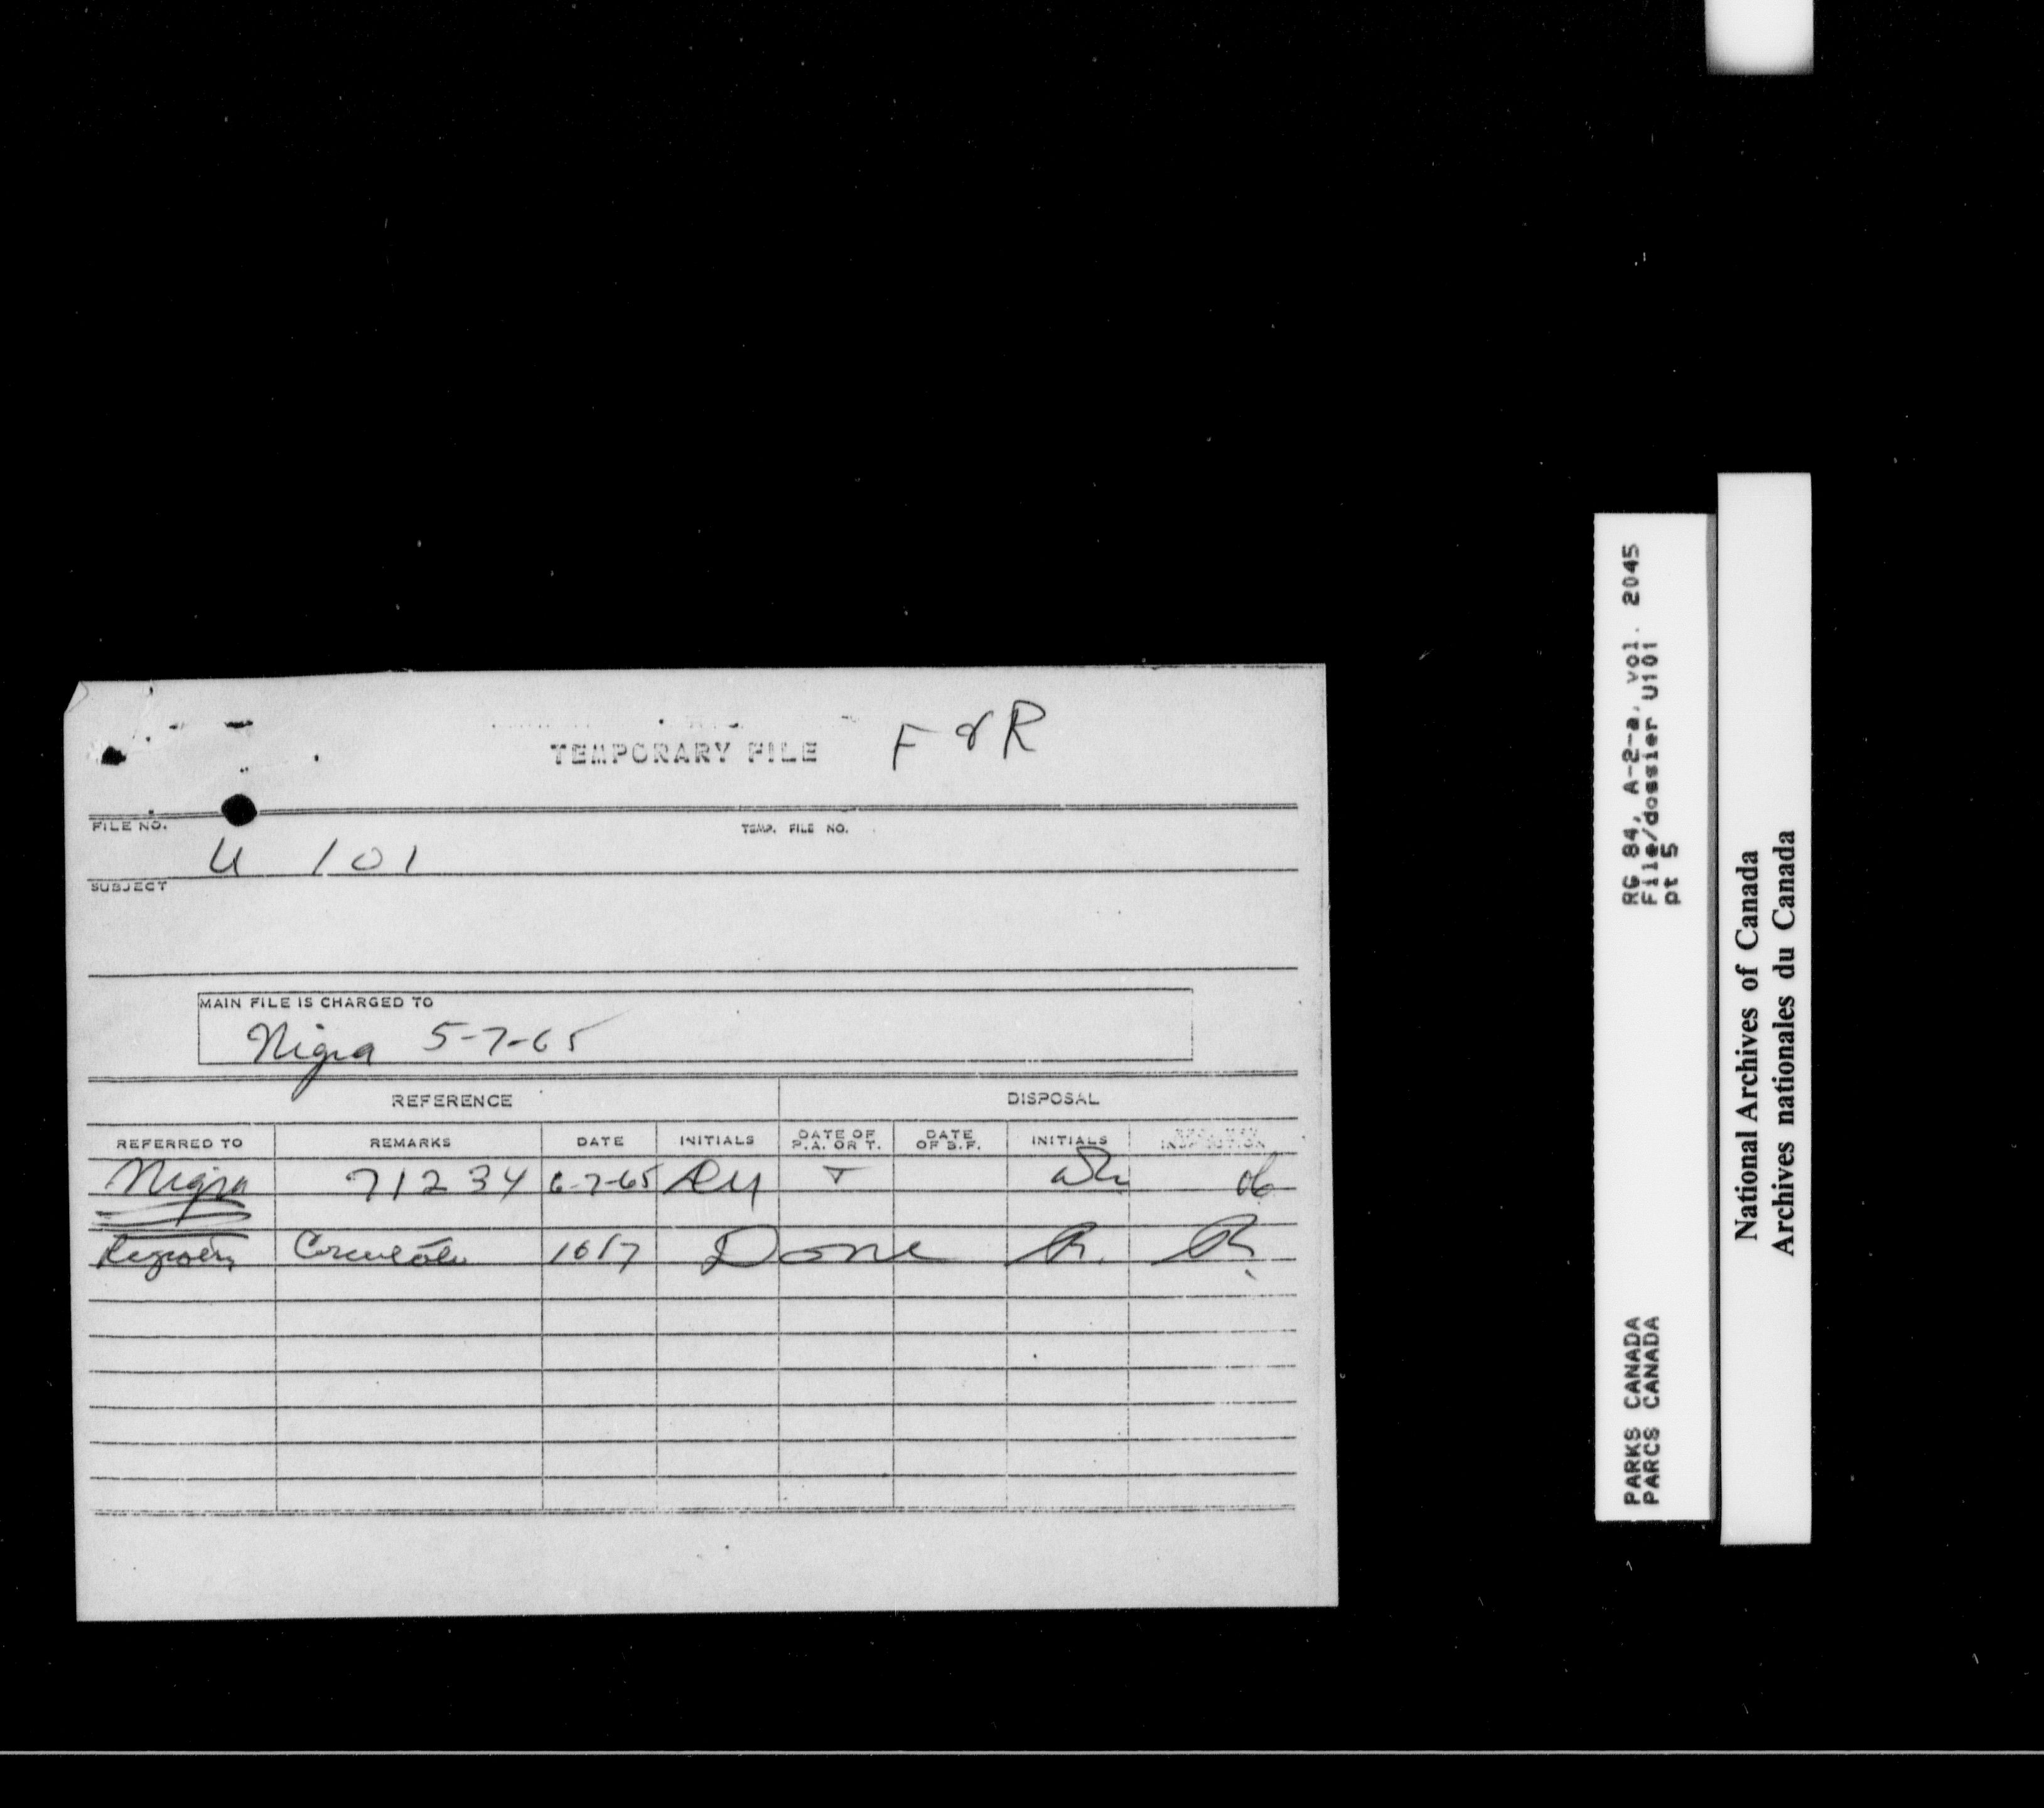 TEMPORARY FILE F & R
FILE NO. TEMP. FILE NO.
U 101
SUBJECT
MAIN FILE IS CHARGED TO
Nigra 5-7-65
REFERENCE DISPOSAL
REFERRED TO REMARKS DATE INITIALS DATE OF P.A. OR T. DATE OF B.F. INITIALS INSPECTION
Nigra 71234 6-7-65 T
16/7 Done R. R.
RG 84, A-2-a, vol. 2045
File/dossier U101
pt 5
PARKS CANADA
PARCS CANADA
National Archives of Canada
Archives nationales du Canada